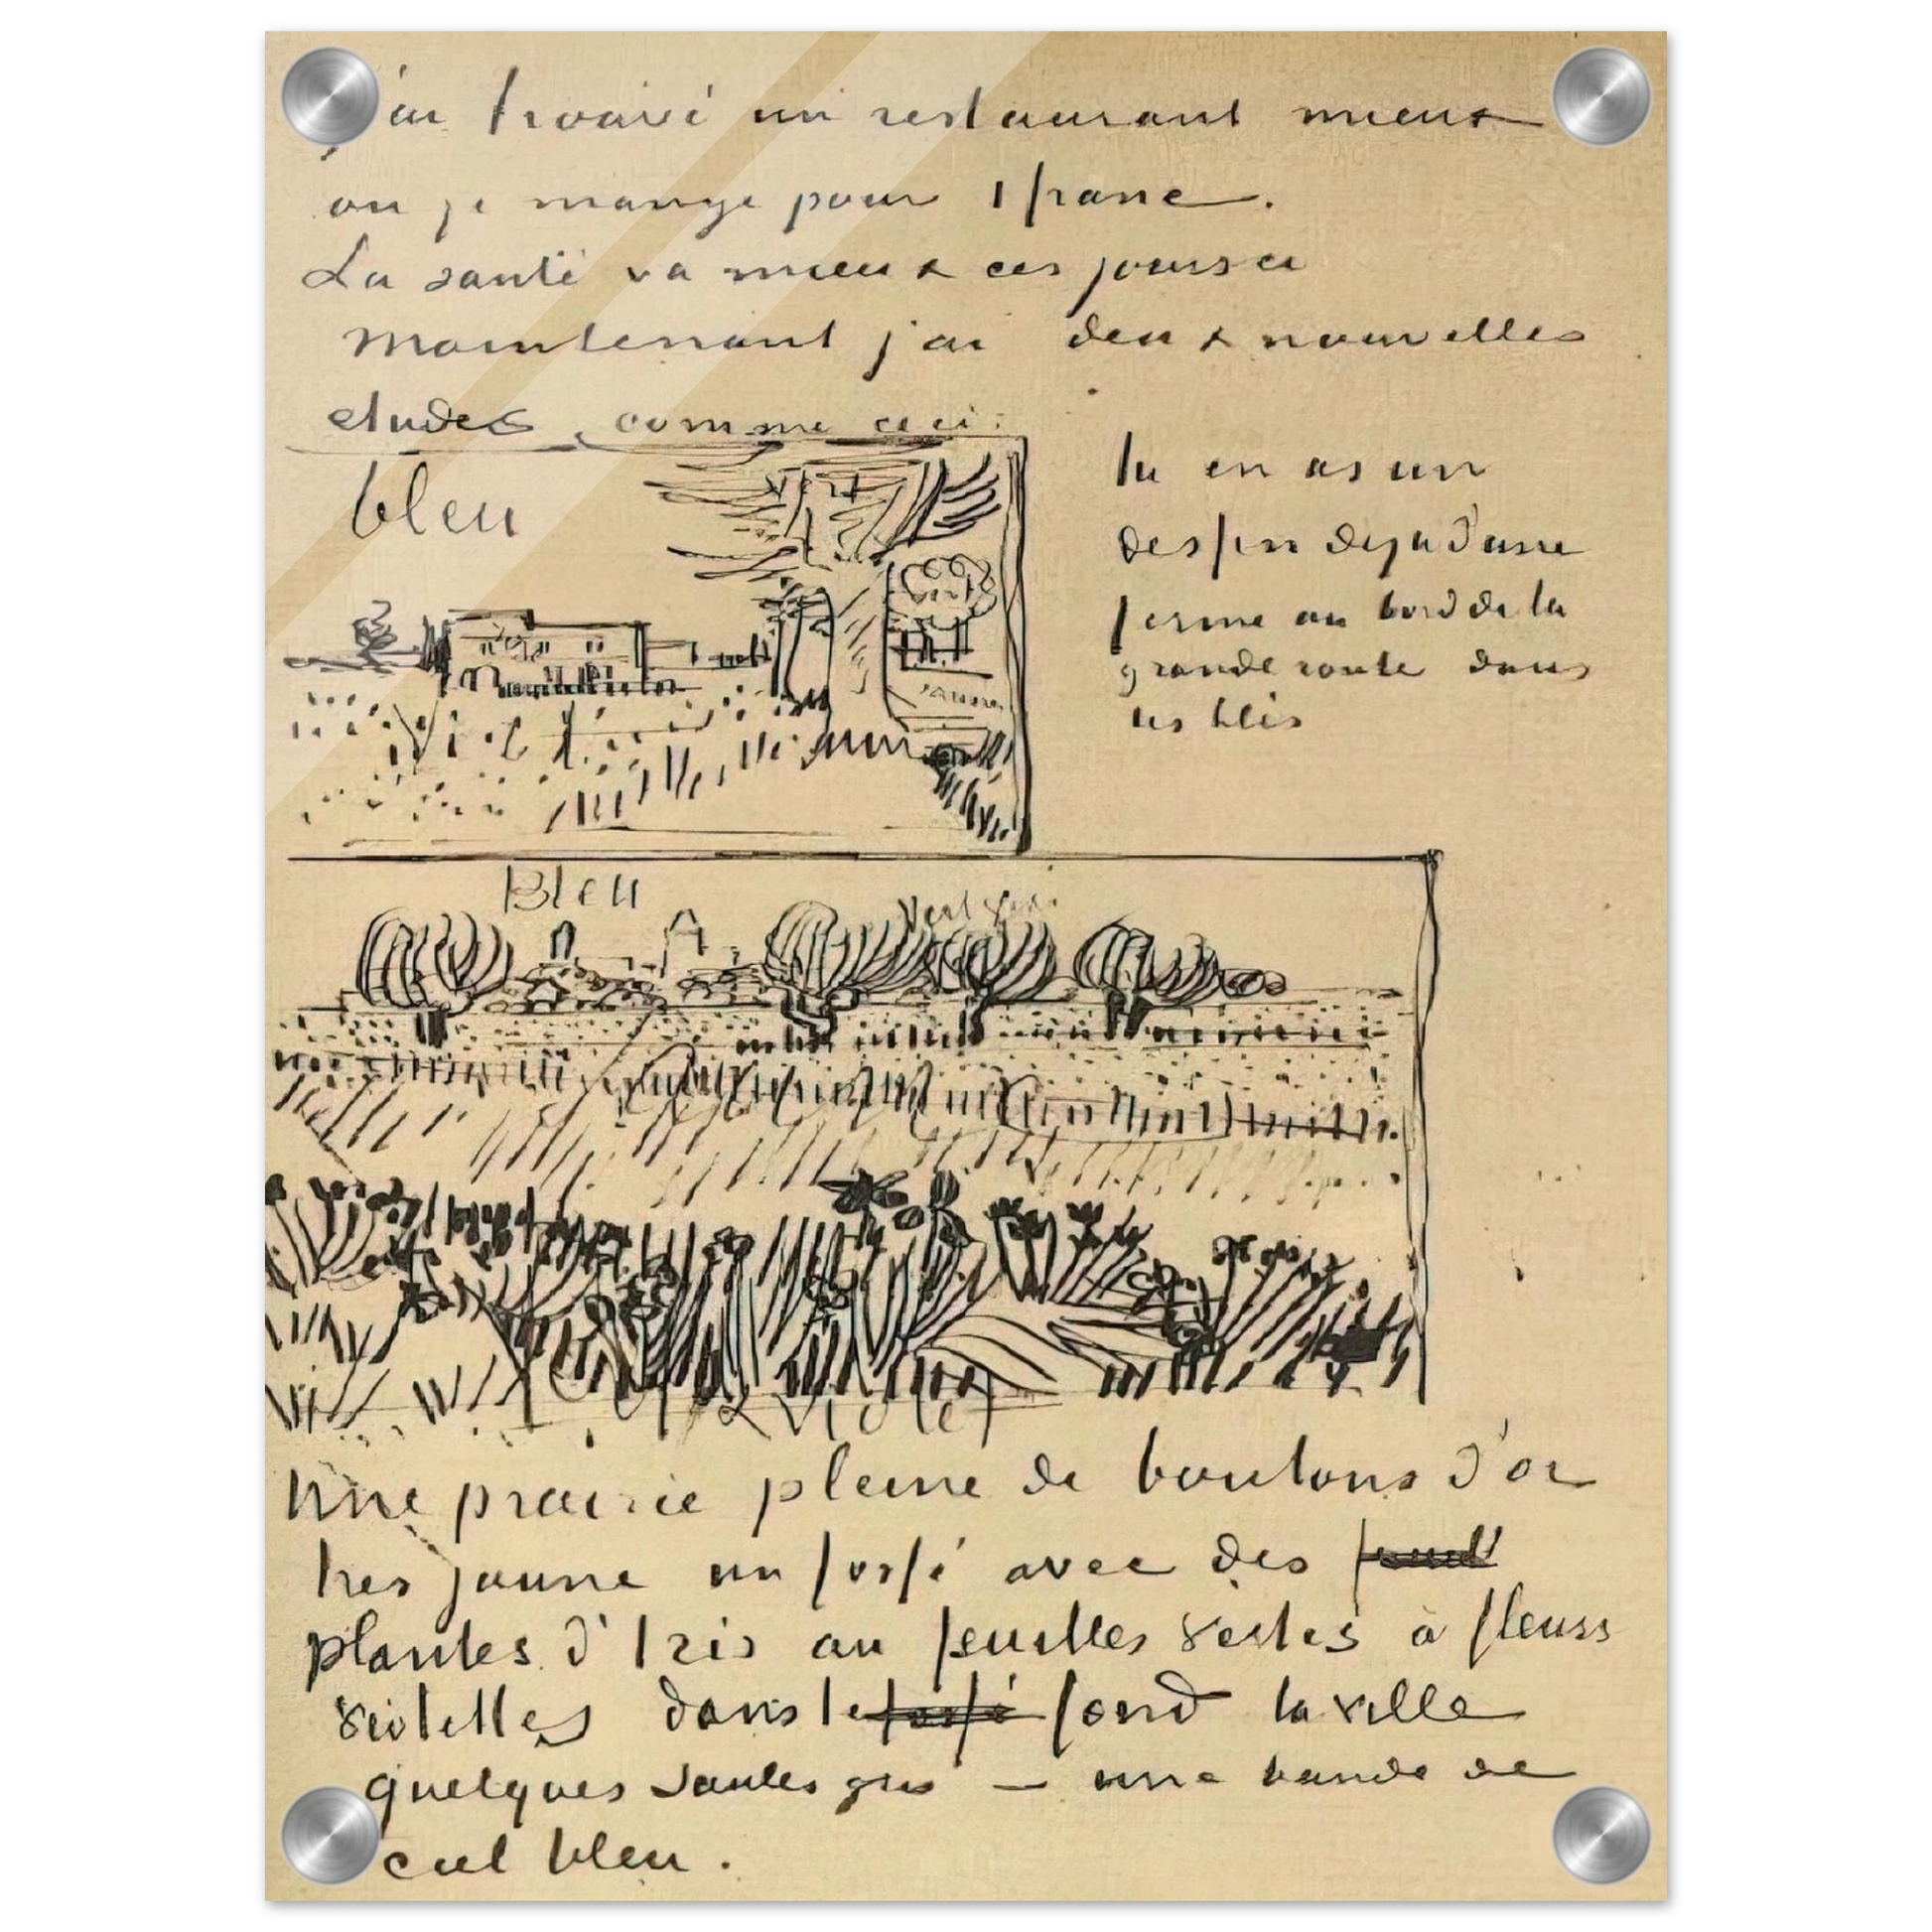 j'ai trouvé un restaurant mieux
ou je mange pour 1 franc.
La santé va mieux ces jours ci
Maintenant j'ai deux nouvelles
etudes comme ceci:
bleu
vert
vert
jaune
tu en as un
dessin deja d'une
ferme au bord de la
grande route dans
les blés
Bleu
vert gris
violet
Une prairie pleine de boutons d'or
tres jaune un fossé avec des
plantes d'Iris au feuilles vertes à fleurs
violettes dans le fossé fond la ville
quelques saules gris — une bande de
ciel bleu.